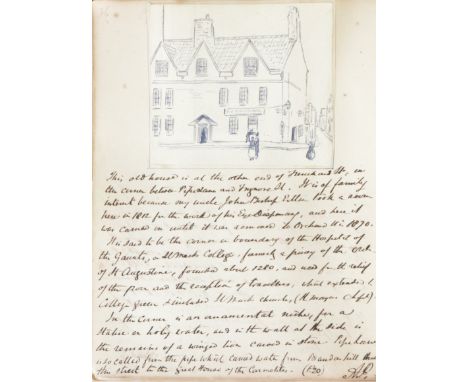 This old house is at the other end of Frenchard St, in
the corner between Pipe Lane and Trymore St. It is of family
interest because my uncle, John Bishop Estlin took a room
here in 1812 for the work of his Eye Dispensary, and here it
was carried on until it was removed to Orchard St in 1870.
It is said to be the corner or boundary of the Hospital of
the Gaunts, or St Mark College, formerly a priory of the order
of St Augustine, founded about 1280, and used for the relief
of the poor and the reception of travellers, which extended to
College green & included St Mark church, (St mayors Chapel).
In the corner is an ornamental niche, for a
statue or holy water, and in the wall at the side is
the remains of a winged lion carved in stone. Pipe house
is so called from the pipe which carried water from Brandon hill thro
this street to the Great House of the Carmelites.